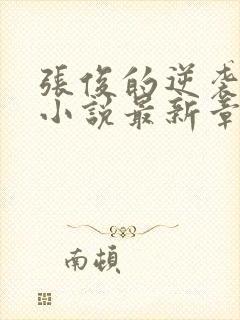 張俊的逆袭
小説最新章
南頓